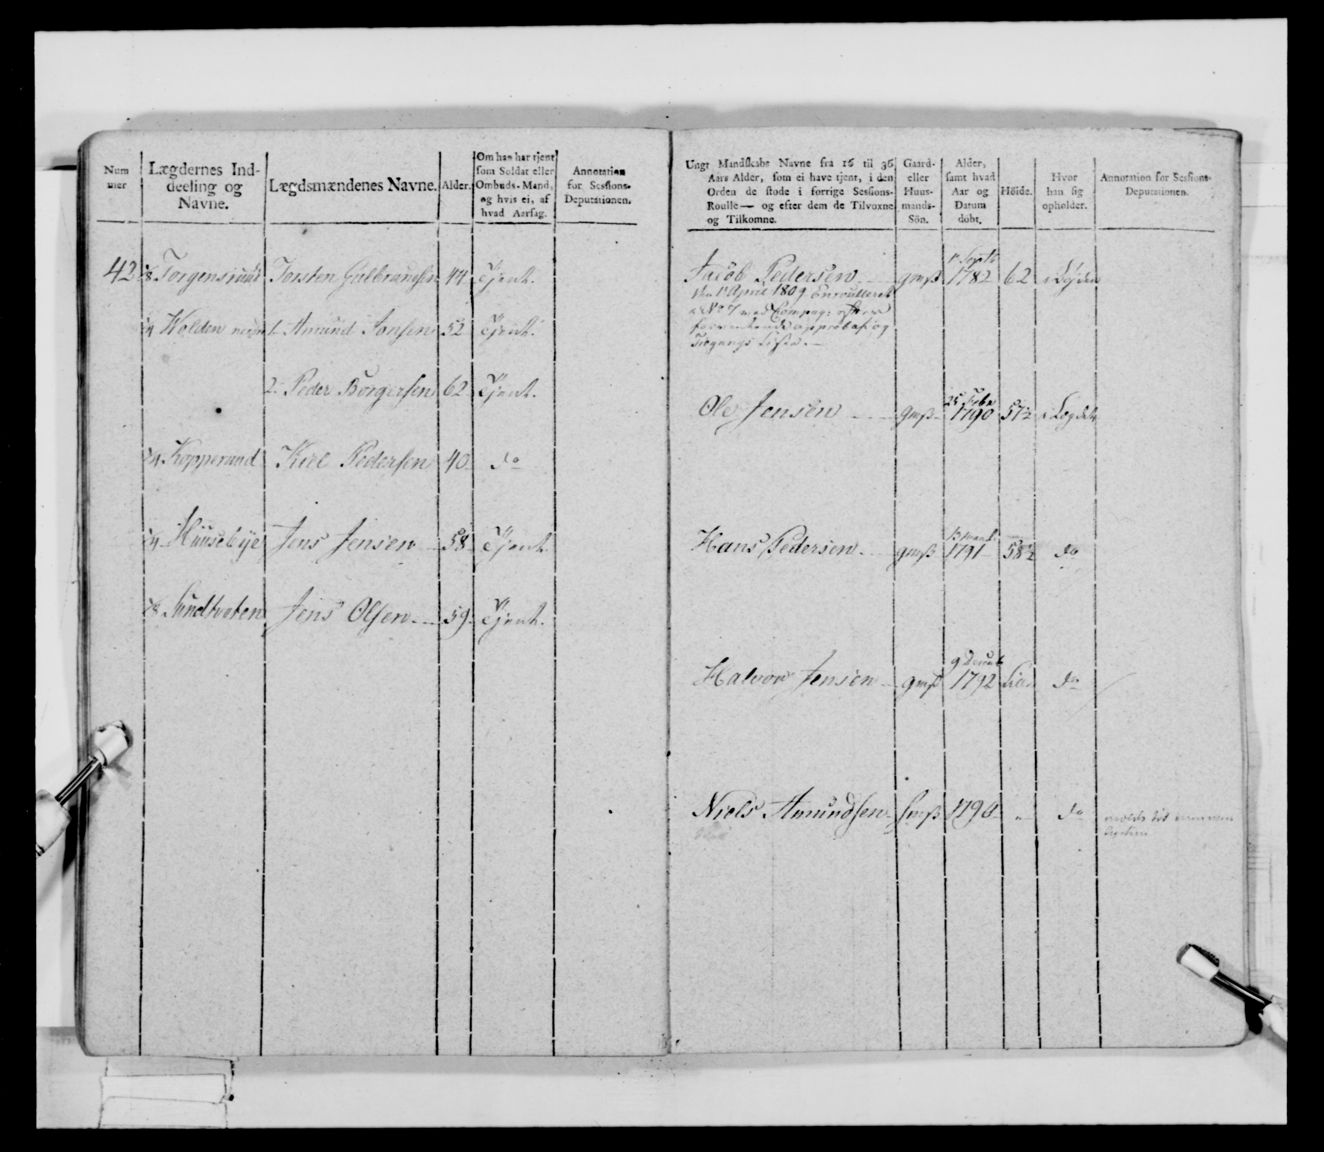 Num
mer
Lægdernes Ind-
deeling og
Navne.
Lægdsmændenes Navne.
Alder.
Om han har tjent
som Soldat eller
Ombuds-Mand,
og hvis ei, af
hvad Aarsag.
Annotation
for Sessions-
Deputationen.
42 Torgensruud Torsten Gulbransen 44 Tjent.
Holden 1. Amund Jonsen 52 Tjent.
2. Peder Borgersen 62 Tjent.
Kopperuud Kiel Pedersen 40 do
Huusebye Jens Jensen 58 Tjent
Sundtveten Jens Olsen 59 Tjent.
Ungt Mandskabs Navne fra 16 til 36
Aars Alder, som ei have tjent, i den
Orden de stode i forrige Sessions-
Roulle — og efter dem de Tilvoxne
og Tilkomne.
Gaard-
eller
Huus-
mands-
Sön.
Alder,
samt hvad
Aar og
Datum
födt.
Höide.
Hvor
han sig
opholder.
Annotation for Sessions-
Deputationen.
1 Septb
Jacob Pedersen gmß 1782 62 i Lægden
den 1 April 1809 Enroulleret
Ole Jensen gmß 1790 57½ i Lægdet
Hans Pedersen gmß 1791 58½ do
9 Decemb
Halvor Jensen gmß 1792 do
Niels Amundsen 1790 " do